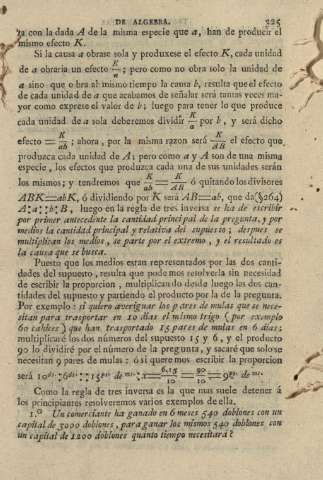 DE ALGEBRA. 225
ra con la dada A de la misma especie que a, han de producir el
mismo efecto K.
Si la causa a obrase sola y produxese el efecto K, cada unidad
de a obraria un efecto K/a; pero como no obra solo la unidad de
a sino que obra al mismo tiempo la causa b, resulta que el efecto
de cada unidad de a que acabamos de señalar será tantas veces ma-
yor como exprese el valor de b; luego para tener lo que produce
cada unidad de a sola deberemos dividir K/a por b, y será dicho
efecto = K/ab; ahora, por la misma razon será K/AB el efecto que
produzca cada unidad de A; pero como a y A son de una misma
especie, los efectos que produzca cada una de sus unidades serán
los mismos; y tendremos que K/ab = K/AB ó quitando los divisores
ABK=abK, ó dividiendo por K será AB=ab, que da (§264)
A:a::b:B, luego en la regla de tres inversa se ha de escribir
por primer antecedente la cantidad principal de la pregunta, y por
medios la cantidad principal y relativa del supuesto; despues se
multiplican los medios, se parte por el extremo, y el resultado es
la causa que se busca.
Puesto que los medios estan representados por las dos canti-
dades del supuesto, resulta que podemos resolverla sin necesidad
de escribir la proporcion, multiplicando desde luego las dos can-
tidades del supuesto y partiendo el producto por la de la pregunta.
Por exemplo: si quiero averiguar los pares de mulas que se nece-
sitan para trasportar en 10 dias el mismo trigo (por exemplo
60 caldces) que han trasportado 15 pares de mulas en 6 dias;
multiplicaré los dos números del supuesto 15 y 6, y el producto
90 lo dividiré por el número de la pregunta, y sacaré que solo se
necesitan 9 pares de mulas: ó si queremos escribir la proporcion
será 10di.:6di.::15pa. de mu.:x=6.15/10=90/10=9pa. de mu.
Como la regla de tres inversa es la que mas suele detener á
los principiantes resolveremos varios exemplos de ella.
1.º Un comerciante ha ganado en 6 meses 540 doblones con un
capital de 3000 doblones, para ganar los mismos 540 doblones con
un capital de 1200 doblones quanto tiempo necesitará?